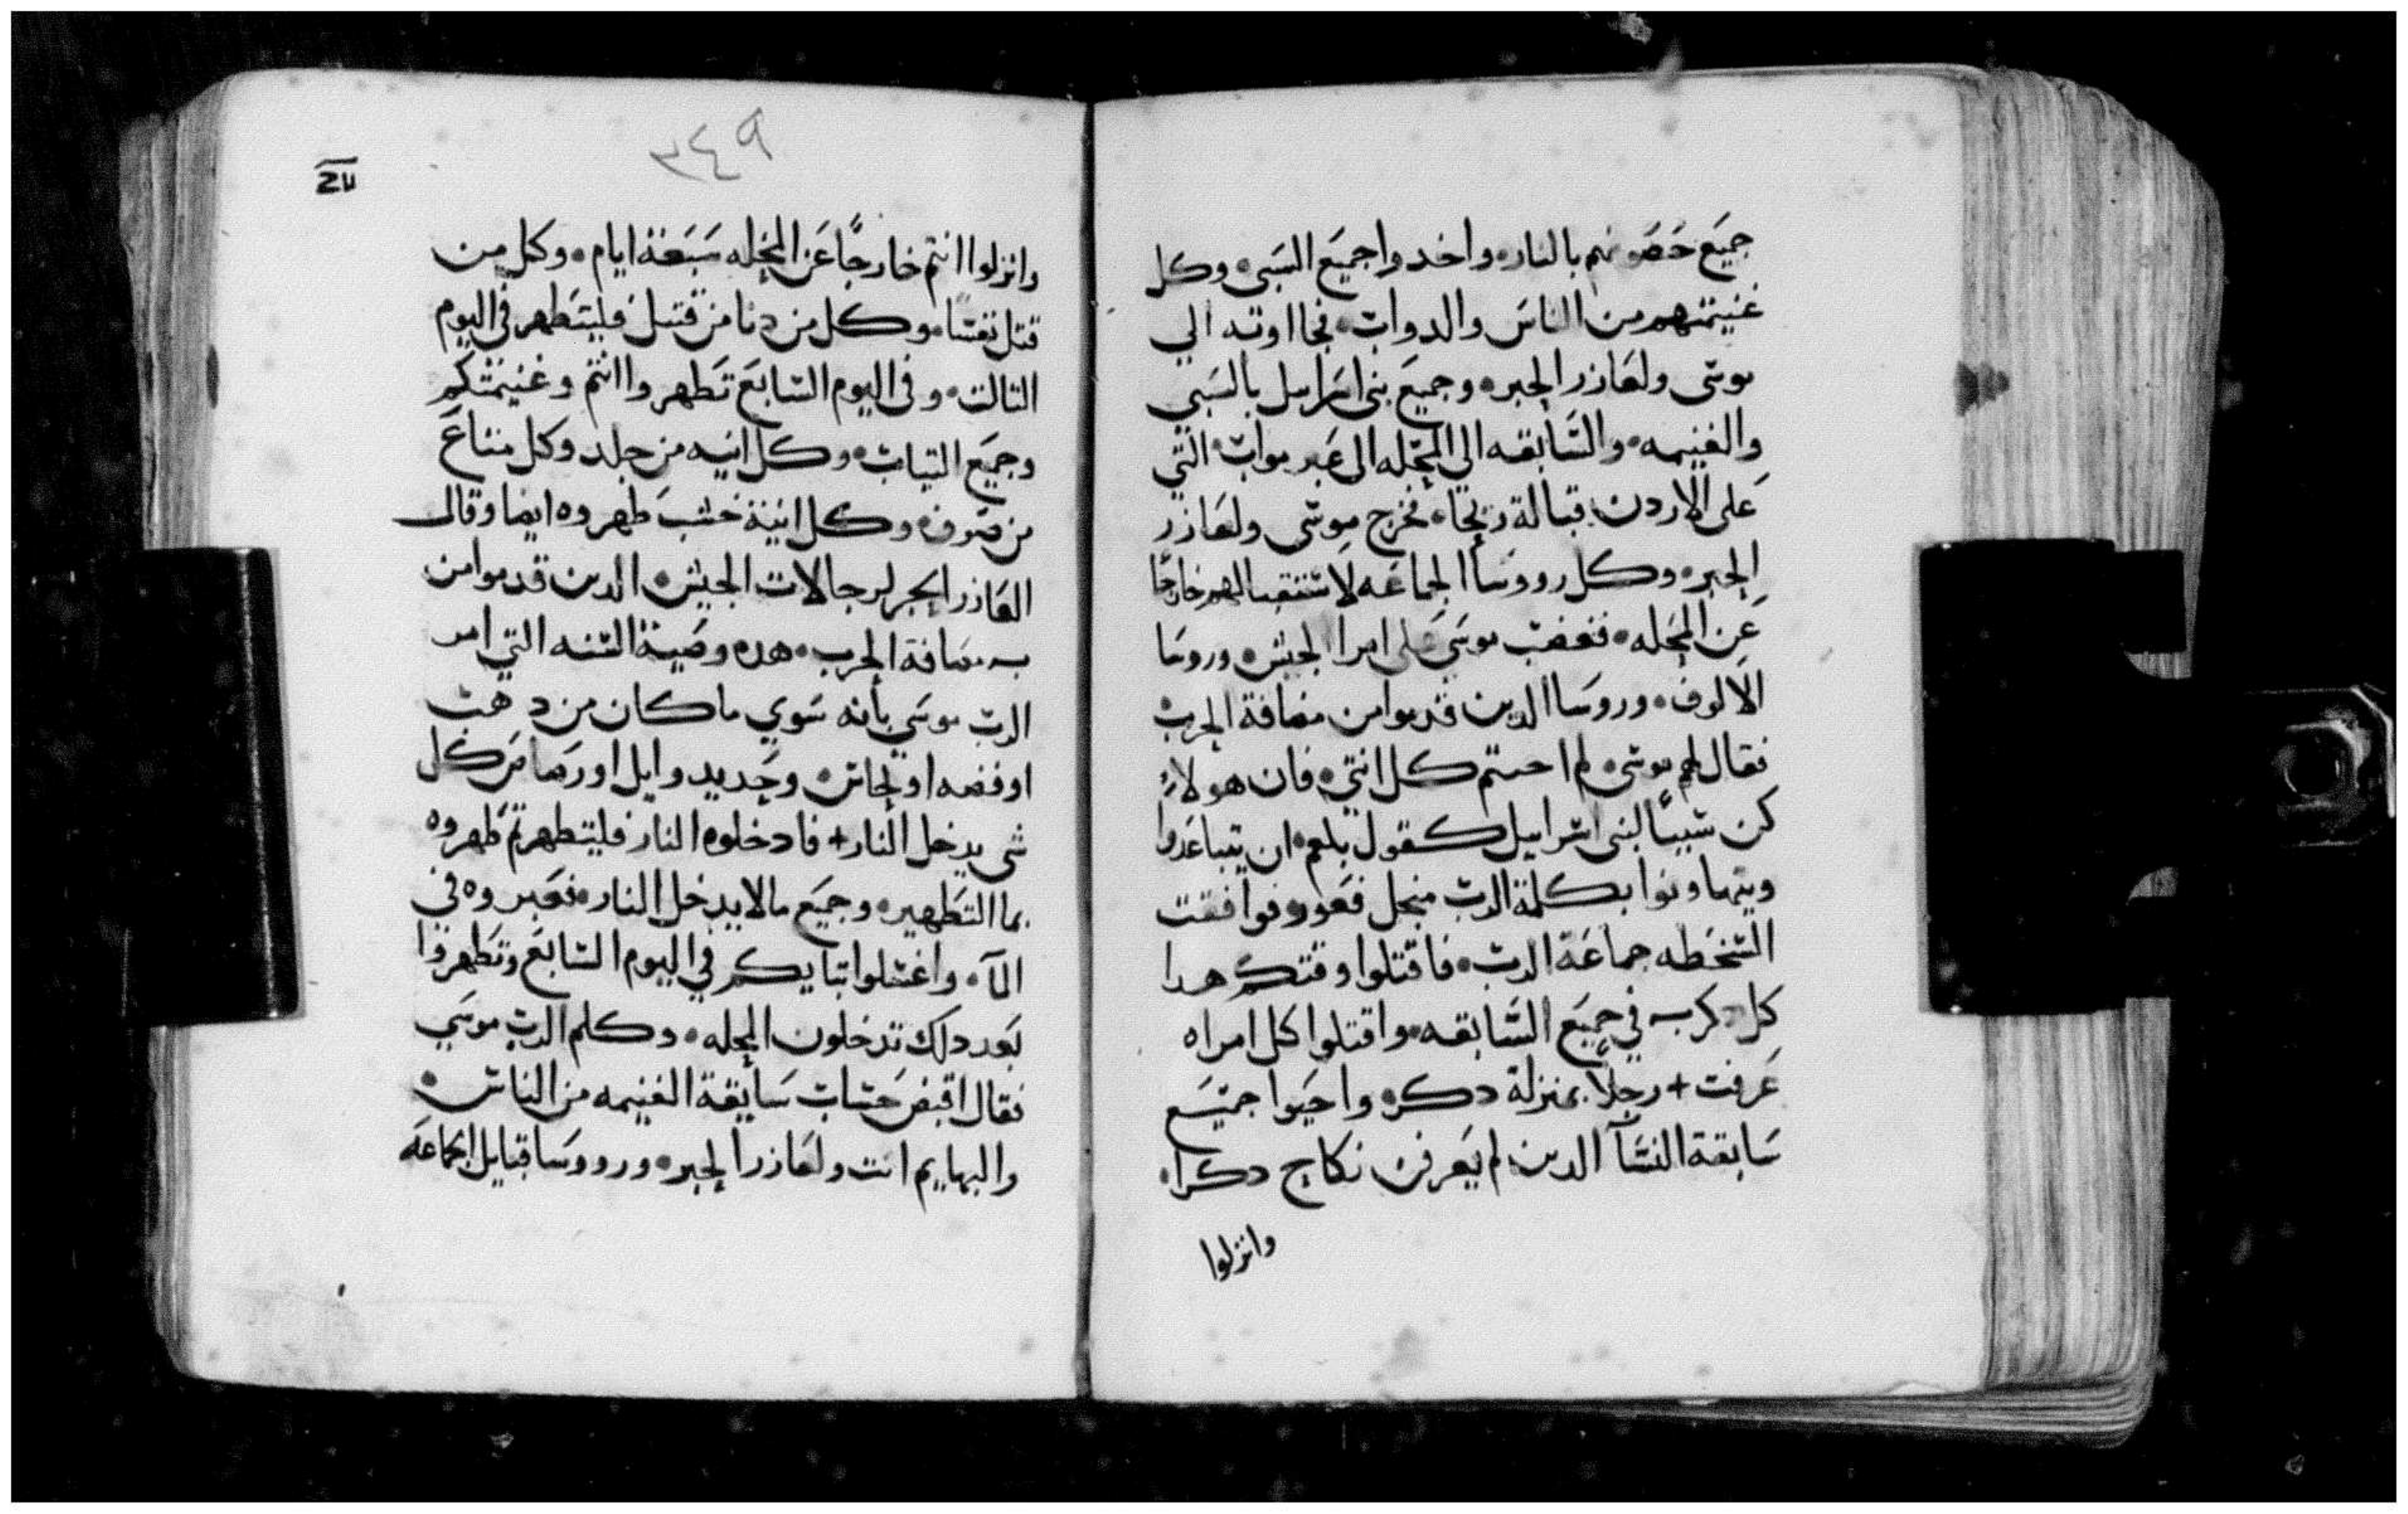 جميع حصونهم بالنار واخدوا جميع السبى وكل
غنيمتهم من الناس والدواب فجااوته الي
موسى ولعازر الحبر وجميع بنى اسراييل بالسبي
والغنيمه والسابقه الى المحله الى عبر مواب التي
على الاردن قبالة ريحا فخرج موسى ولعازر
الحبر وكل رووسا الجماعه لاستقبالهم خارجًا
عن المحله فغضب موسى على امرا الجيش وروسا
الالوف وروسا الدين قدموا من مصافة الحرب
فقال لهم موسى لم احييتم كل انتى فان هولاءِ
كن سببًا لبنى اسراييل كقول بلعم ان يتباعدوا
ويتهاونوا بكلمة الرب منجل فغور فوافقت
السخطه جماعة الرب فاقتلوا وقتكم هدا
كل دكر به في جميع السابقه واقتلوا كل امراه
عرفت + رجلًا بمنزلة دكر واحيوا جميع
سابقة النسآ الدين لم يعرفن نكاح دكرا
وانزلوا
٣٤٩
وانزلوا انتم خارجًا عن المحله سبعة ايام وكل من
قتل نفسًا وكل من دنا من قتيل فليتطهر في اليوم
التالت وفي اليوم السابع تطهروا انتم وغنيمتكم
وجميع التياب وكل انيه من جلد وكل متاع
من صوف وكل انية خشب طهروه ايضا وقال
العازر الحبر لرجالات الجيش الدين قدموا من
به مصافة الحرب هده وصية السنه التي امر
الرب موسي بانه سوي ما كان من دهب
او فضه او نحاس وحديد وايل او رصاص كل
شي يدخل النار + فادخلوه النار فليتطهر تم طهروه
بما التطهير وجميع مالا يدخل النار فعبروه في
المآ واغسلوا تيابكم في اليوم السابع وتطهروا
بعد دلك تدخلون المحله وكلم الرب موسي
فقال اقبض حساب سابقة الغنيمه من الناس
والبهايم انت ولعازر الحبر ورووسا قبايل الجماعه